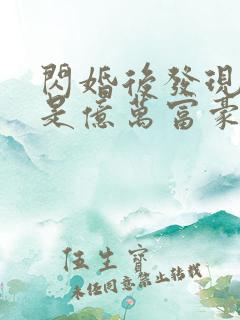 閃婚後發現
是億萬富豪
伍生寶
未經同意禁止轉載